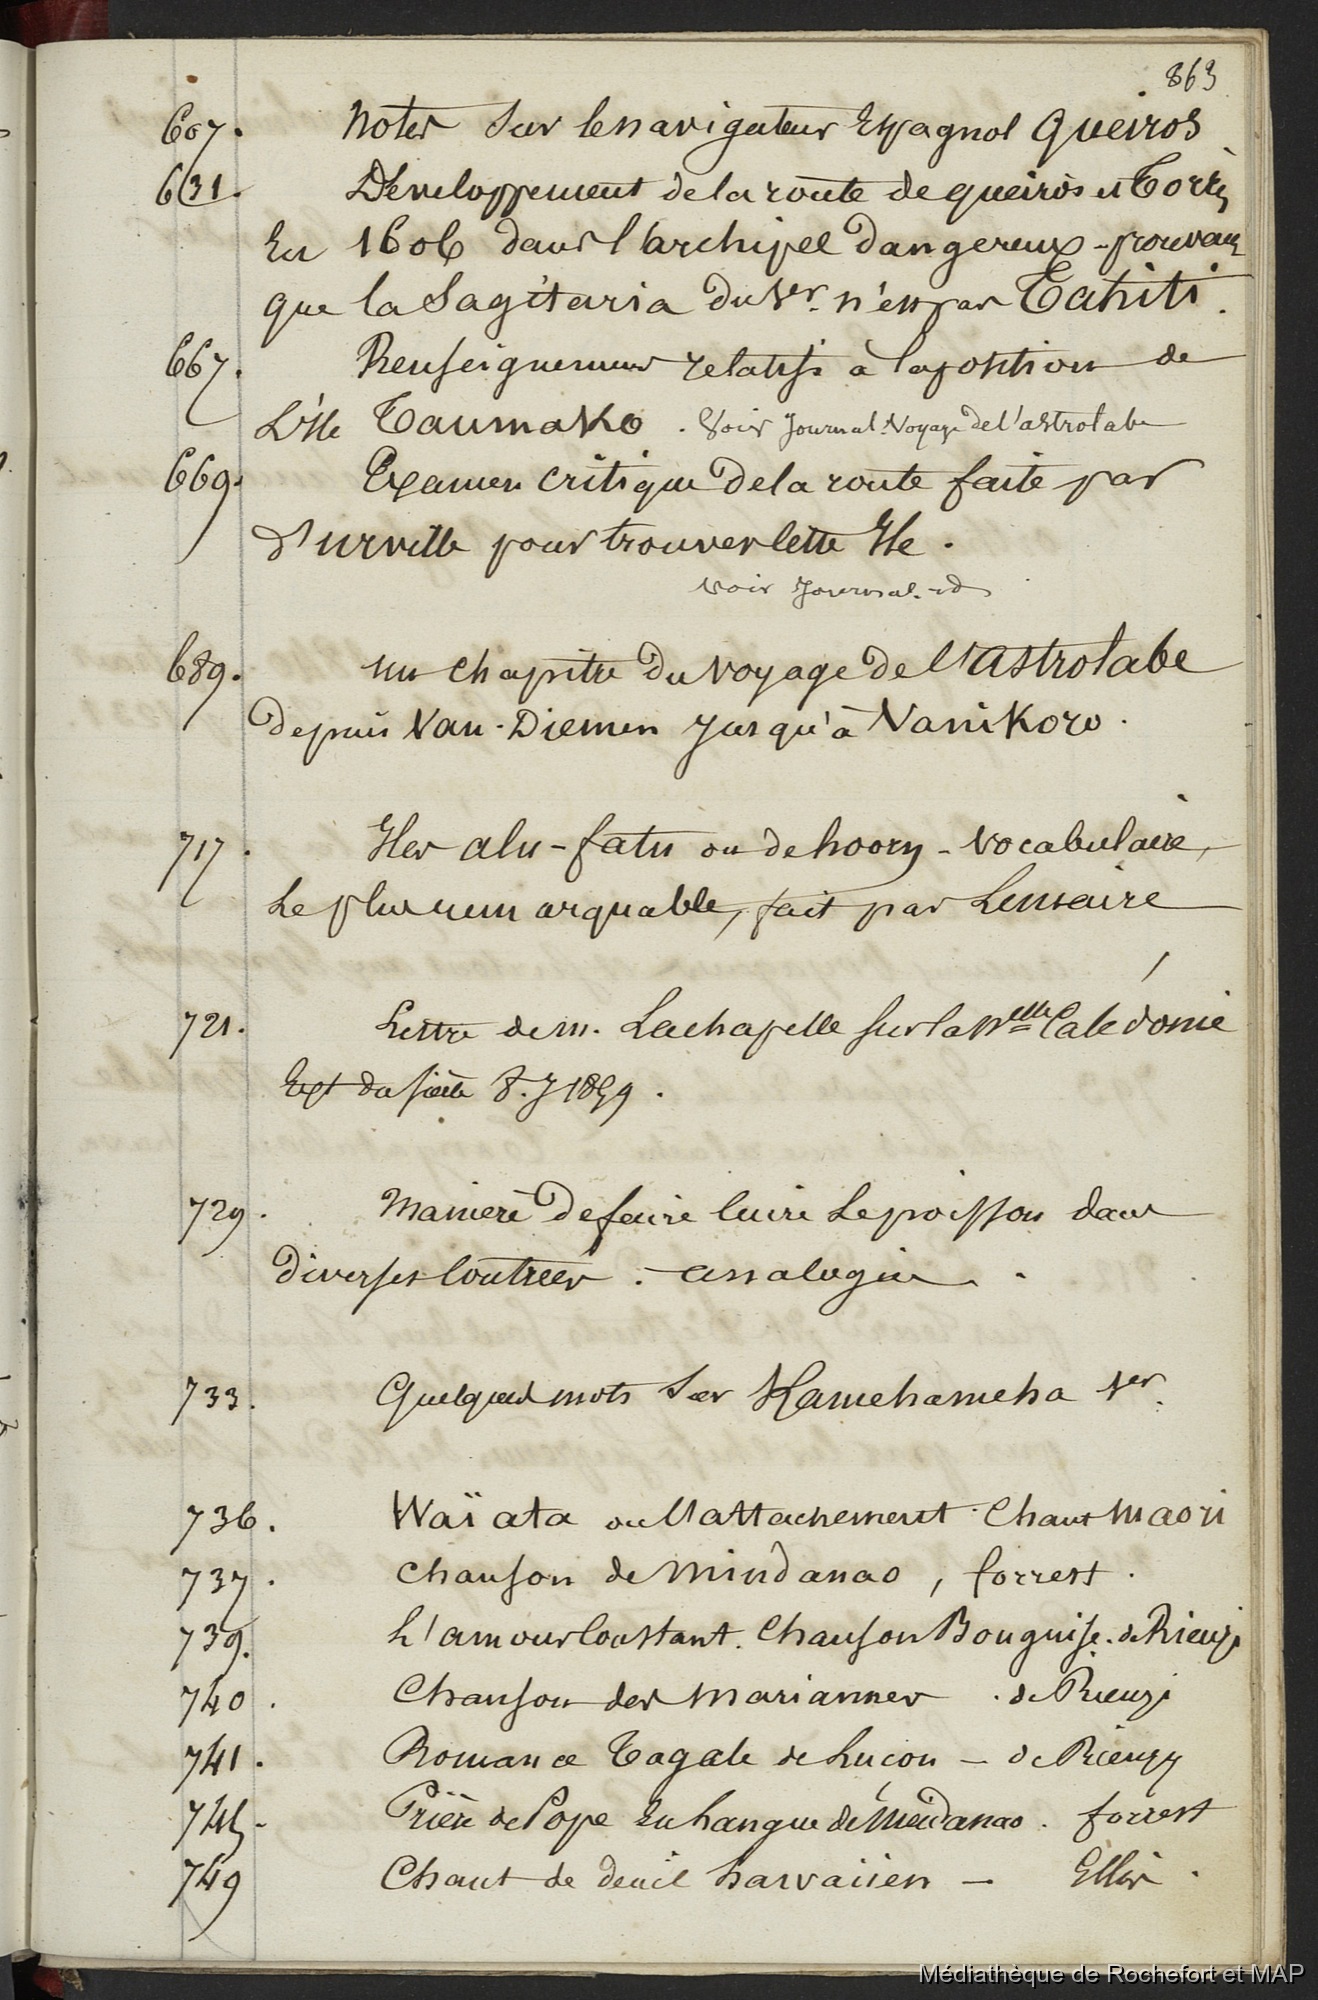 863
607. Notes sur le navigateur Espagnol Queiros
631. Développement de la route de queiros et Torrès
En 1606 dans l'archipel dangereux - prouvant
que la Sagitaria du 1er. n'est pas Tahiti.
667. Renseignemens relatifs à la position de
L'île Taumako. Voir Journal-Voyage de l'astrolabe
669. Examen critique de la route faite par
d'urville pour trouver cette Ile.
voir Journal-id
689. un chapitre du voyage de l'astrolabe
depuis Van-Diemen Jusqu'à Vanikoro.
717. Iles alu-fatu ou de hoorn - vocabulaire,
Le plus remarquable, fait par Lemaire
721. Lettre de m. Lachapelle sur la Nelle Calédonie
Ext du siècle 8. J 1859.
729. Maniere de faire cuire Le poisson dans
diverses Contrées. - analogies.
733. Quelques mots sur Kamehameha 1er.
736. Waï ata ou l'attachement. Chant Maori
737. Chanson de Mindanao, forrest.
739. L'amour Constant. Chanson Bouguise. de Rienzi
740. Chanson des mariannes. de Rienzi
741. Romance Tagale de Luçon - de Rienzy
745- Prière de Pope En Langue de Meidanao. forrest
749 Chant de deuil havaiien - Ellis.
Médiathèque de Rochefort et MAP